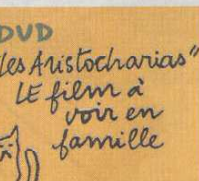 DVD
"Les Aristocharias"
LE film à
voir en
famille